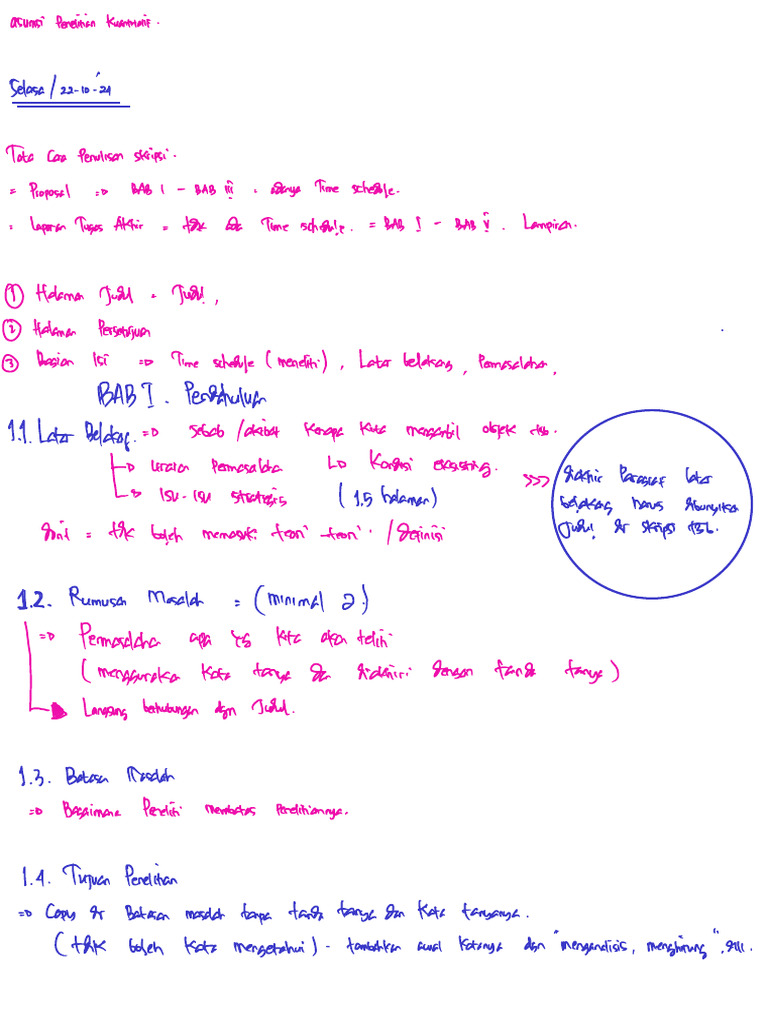 asumsi Penelitian Kuantitatif.
Selasa / 22-10-'24
Tata Cara Penulisan skripsi.
= Proposal => BAB I - BAB III. adanya Time schedule.
= Laporan Tugas Akhir = tdk ada Time schedule. = BAB I - BAB V. Lampiran.
① Halaman Judul = Judul,
② Halaman Persetujuan
③ Bagian Isi => Time schedule (meneliti), Latar belakang, Permasalahan,
BAB I. Pendahuluan
1.1. Latar Belakang. => sebab / akibat kenapa kita mengambil objek tsb.
-> uraian Permasalahan -> Kondisi eksisting.
-> ISU-ISU strategis (1.5 halaman)
disini = tdk boleh memasuk. teori-teori. / definisi
>>> diakhir Paragraf latar
belakang harus dibunyikan
Judul dr skripsi tsb.
1.2. Rumusan Masalah = (minimal 2.)
=> Permasalahan apa yg kita akan teliti
(menggunakan kata tanya dan diakhiri dengan tanda tanya)
-> Langsung berhubungan dgn Judul.
1.3. Batasan Masalah
=> Bagaimana Peneliti membatas Penelitiannya.
1.4. Tujuan Penelitian
=> Copy dr Batasan masalah tanpa tanda tanya dan kata tanyanya.
(tdk boleh kata mengetahui) - tambahkan awal katanya dgn "menganalisis, menghitung", dll.